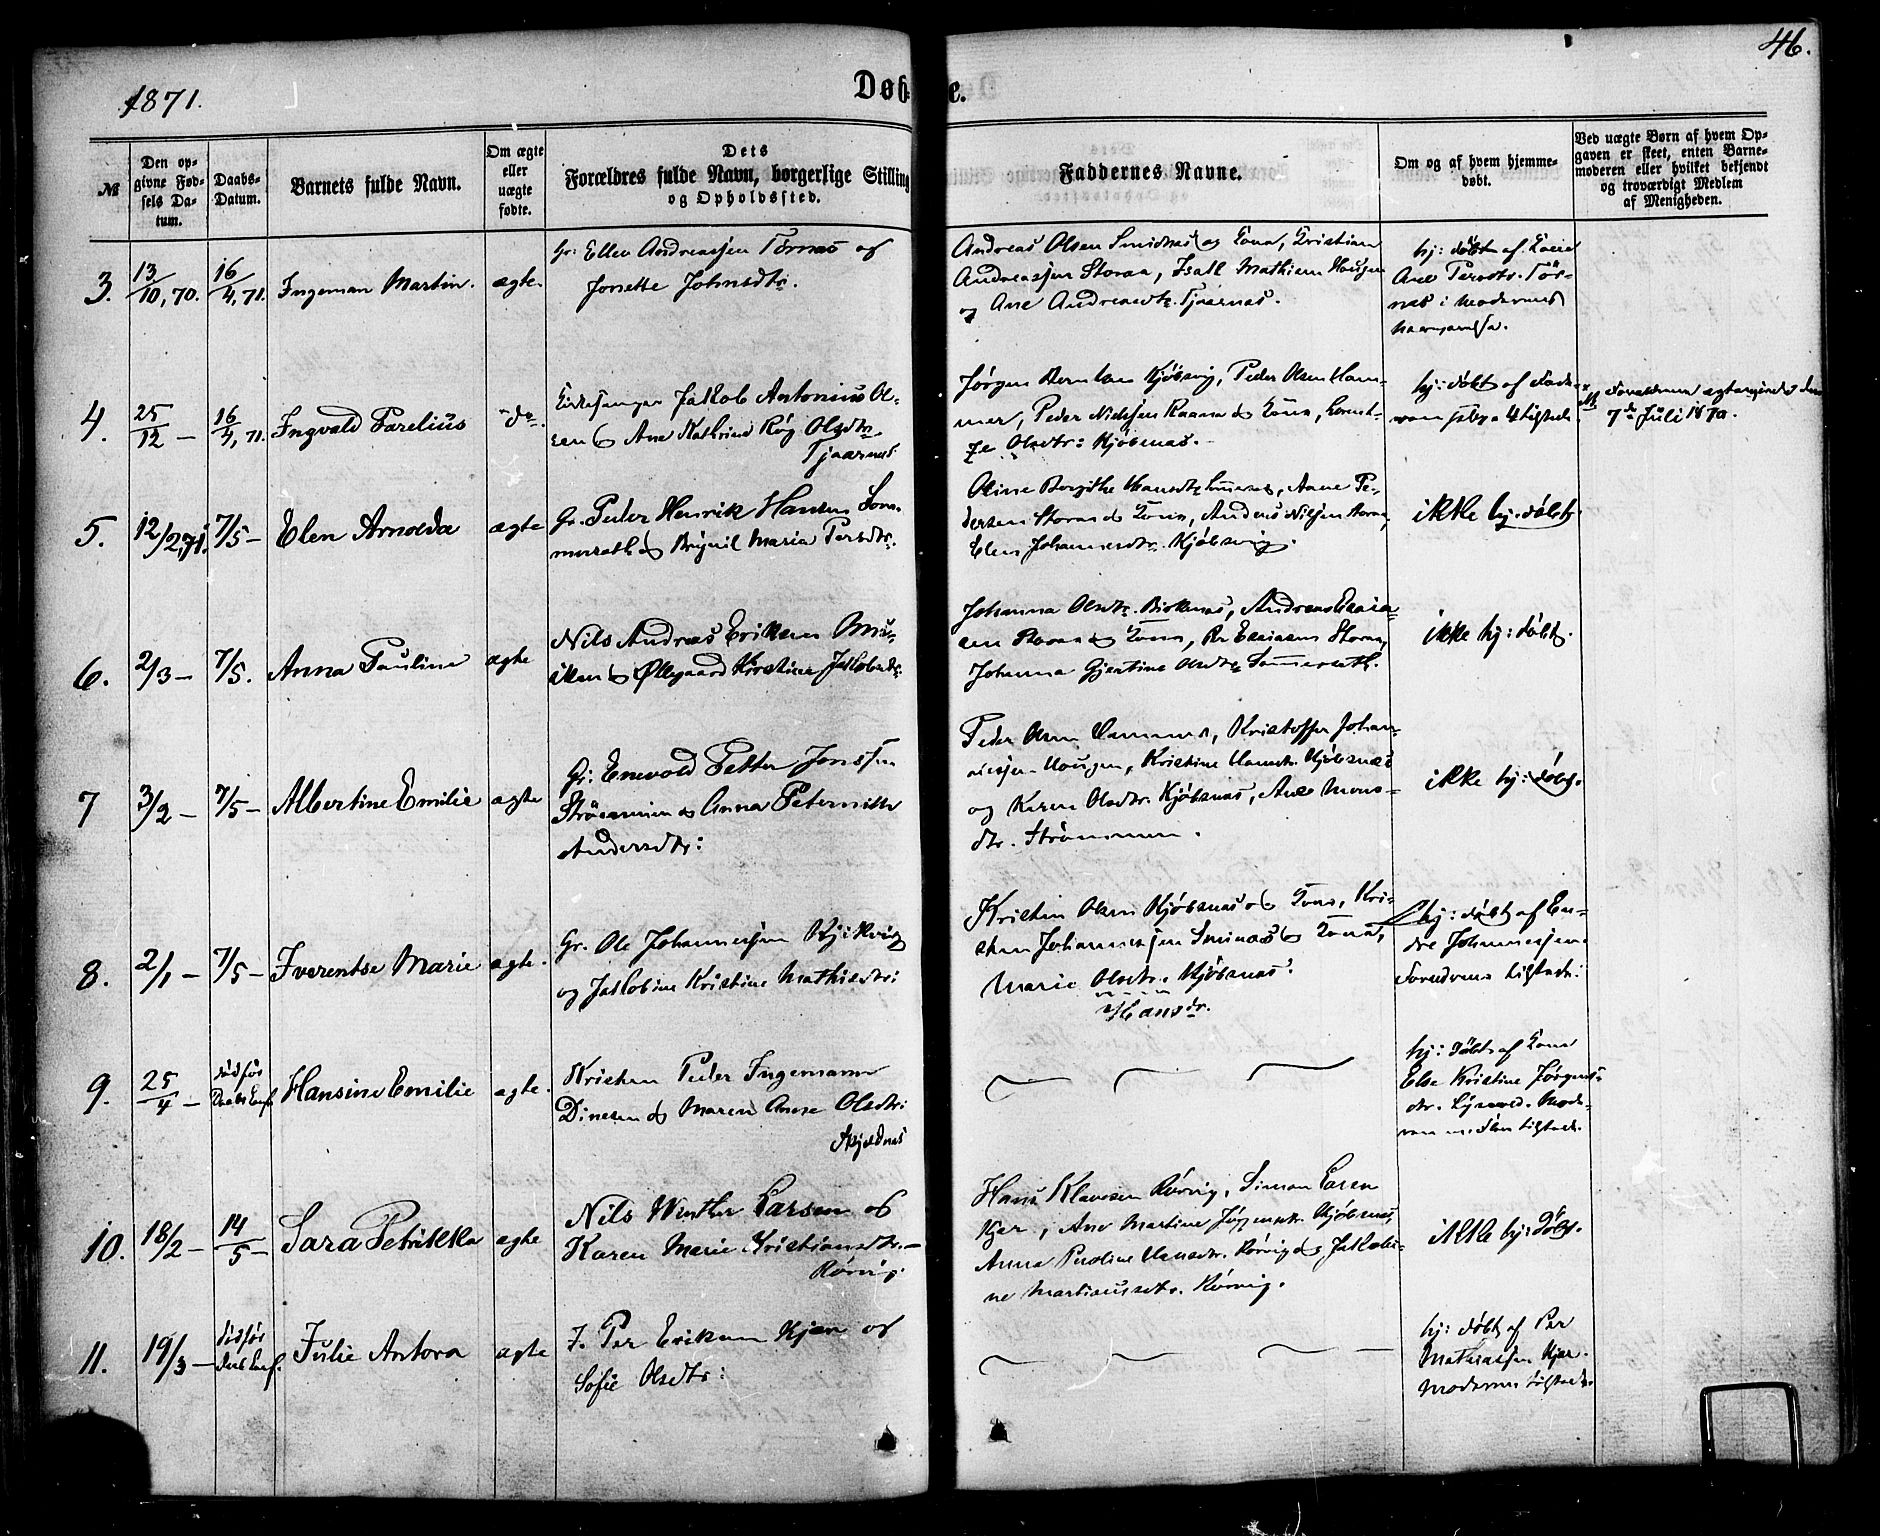 46.
1871.
Døbte.
№
Den op-
givne Fød-
sels Da-
tum.
Daabs-
Datum.
Barnets fulde Navn.
Om ægte
eller
uægte
fødte.
Dets
Forældres fulde Navn, borgerlige Stilling
og Opholdssted.
Faddernes Navne.
Om og af hvem hjemme-
døbt.
Ved uægte Børn af hvem Op-
gaven er skeet, enten Barne-
moderen eller hvilket bekjendt
og troværdigt Medlem
af Menigheden.
3. 13/10, 70. 16/4, 71. Ingeman Martin. ægte.
Gr: Ellen Andreassen Tørnæs og
Jonette Johnsdtr.
Andreas Olsen Smidnes og Kona, Kristian
Andreassen Storaa, Isak Mathisen Haugen
og Ane Andreasdtr. Tjaarnæs.
hj: døbt af Kone
Ane Persdtr. Tør-
næs i Moderens
4. 25/12 – 16/4, 71. Ingvald Parelius -do.
Kirkesanger Jakob Antonius Ol-
sen & Ane Kathrine Røg Olsdtr.
Tjaarnes
Jørgen Berntsen Kjøbsvig, Peder Olsen Ham-
mer, Peder Nielsen Raana & Kona,
Olsdtr: Kjøbsnæs.
hj: døbt af Fade-
ren
Forældrene ægteviede den
7de Juli 1870.
5. 12/2, 71. 7/5 – Elen Arnolda ægte
Gr. Peder Henrik Hansen Som-
merseth & Brynil Maria Persdtr.
Oline Bergithe Hansdtr. Anne Pe-
dersen Storaa & Kona, Anders Nilsen
Elen Johannesdtr. Kjøbsvig.
ikke hj: døbt.
6. 2/3 – 7/5. Anna Pauline ægte
Nils Andreas Eriksen
& Øllegaard Kristine Jakobsdtr.
Johanna Olsdtr. Birknæs, Andreas Esaia-
sen & Kona, Per Esaiasen Storaa,
Johanna Gjertine Olsdtr. Sommerseth.
ikke hj: døbt.
7 3/2 – 7/5 – Albertine Emilie ægte
Gr: Enevold Petter Jonssen
Strømmen & Anna Peternille
Andersdtr:
Peder Olsen Hammer, Kristoffer Johan-
nessen Haugen, Kristine Hansdtr. Kjøbsnæs
og Karen Olsdtr. Kjøbsnæs, Ane Mons-
dtr. Strømmen.
ikke hj: døbt.
8. 2/1 – 7/5 – Iverentse Marie ægte.
Gr. Ole Johannessen Kjikvig
og Jakobine Kristine Mathisdtr:
Kristen Olsen Kjøbsnæs & Kona, Kri-
sten Johannessen Sminæs & Kona,
Marie Olsdtr. Kjøbsnæs.
Hansdr.
hj: døbt af En-
dre Johannessen.
9. 25/4 – død før
Hansine Emilie ægte.
Kristen Peder Ingemann
Dinesen & Maren Anne Olsdtr:
Skjeldnes
hj: døbt af Kona
Else Kristine Jørgens-
dtr.
10. 18/2 – 14/5 – Sara Petrikka ægte
Nils Winther Larsen og
Karen Marie Kristiansdtr. –
Rørvig.
Hans Klausen Rørvig, Simon Larsen
Kjær, Ane Martine Jørgensdtr. Kjøbsnæs,
Anna Pauline Hansdtr. Rørvig & Jakobi-
ne Martinusdtr. Rørvig.
ikke hj: døbt.
11. 19/3 – død før
Julie Antora ægte
I. Per Eriksen Kjær og
Sofie Olsdtr:
hj: døbt af Per
Mathiassen Kjær.